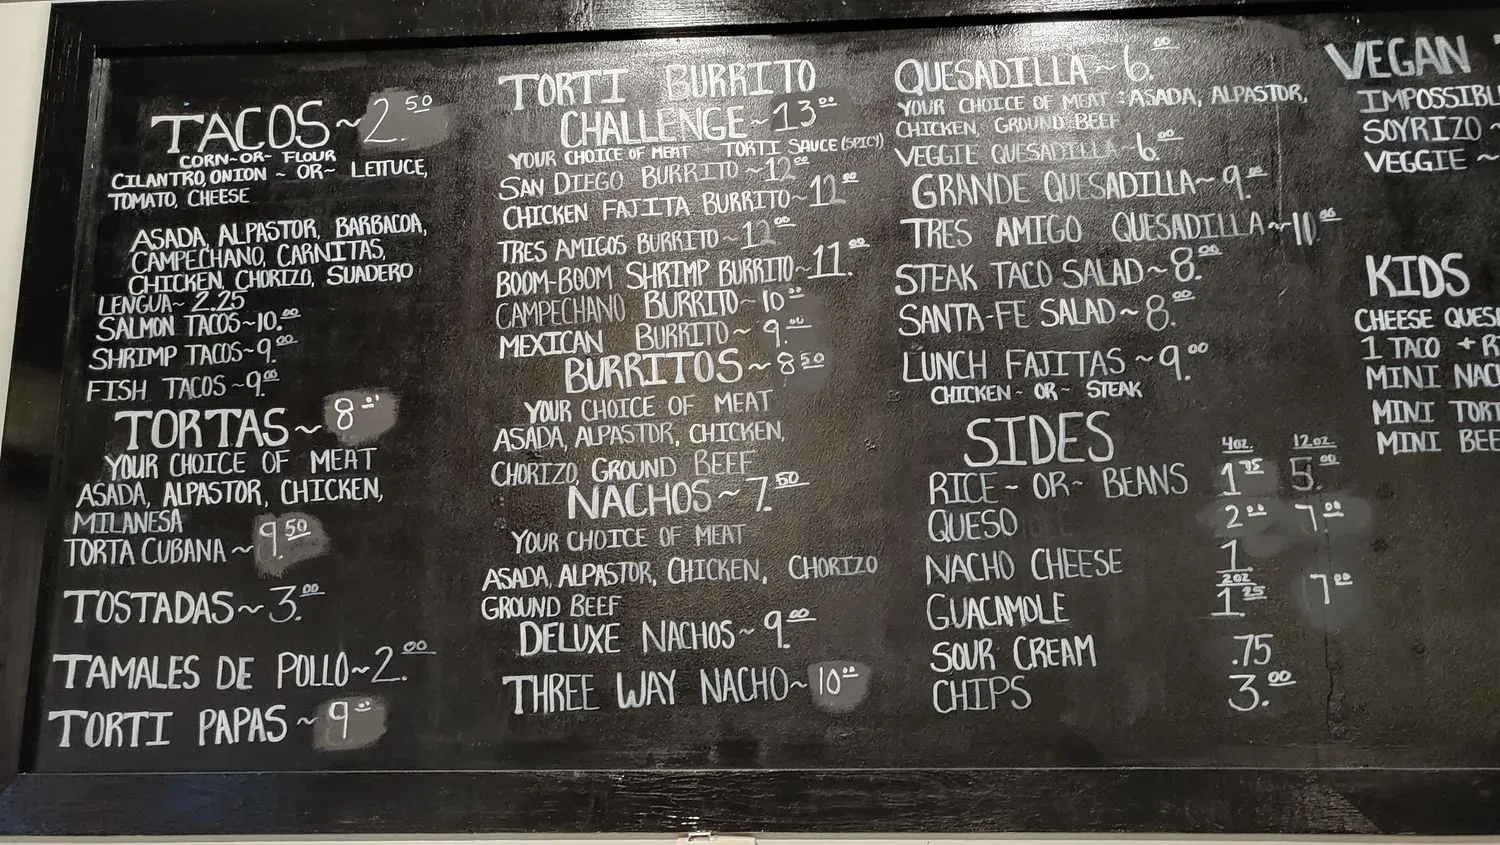 TACOS~2.50
CORN~OR~ FLOUR
CILANTRO, ONION ~ OR~ LETTUCE,
TOMATO, CHEESE
ASADA, ALPASTOR, BARBACOA,
CAMPECHANO, CARNITAS,
CHICKEN, CHORIZO, SUADERO
LENGUA~ 2.25
SALMON TACOS~10.00
SHRIMP TACOS~9.00
FISH TACOS~9.00
TORTAS~8
YOUR CHOICE OF MEAT
ASADA, ALPASTOR, CHICKEN,
MILANESA
TORTA CUBANA~9.50
TOSTADAS~3.00
TAMALES DE POLLO~2.00
TORTI PAPAS~9.00
TORTI BURRITO
CHALLENGE~13.00
YOUR CHOICE OF MEAT TORTI SAUCE (SPICY)
SAN DIEGO BURRITO~12.00
CHICKEN FAJITA BURRITO~12.00
TRES AMIGOS BURRITO~12.00
BOOM-BOOM SHRIMP BURRITO~11.00
CAMPECHANO BURRITO~10
MEXICAN BURRITO~9.00
BURRITOS~8.50
YOUR CHOICE OF MEAT
ASADA, ALPASTOR, CHICKEN,
CHORIZO, GROUND BEEF
NACHOS~7.50
YOUR CHOICE OF MEAT
ASADA, ALPASTOR, CHICKEN, CHORIZO
GROUND BEEF
DELUXE NACHOS~9.00
THREE WAY NACHO~10.00
QUESADILLA~6.00
YOUR CHOICE OF MEAT: ASADA, ALPASTOR,
CHICKEN, GROUND BEEF
VEGGIE QUESADILLA~6.00
GRANDE QUESADILLA~9.00
TRES AMIGO QUESADILLA~10.00
STEAK TACO SALAD~8.00
SANTA-FE SALAD~8.00
LUNCH FAJITAS~9.00
CHICKEN~OR~ STEAK
SIDES
4oz. 12oz.
RICE~OR~ BEANS 1.75 5.00
QUESO 2.00 7.00
NACHO CHEESE 1.
2oz
GUACAMOLE 1.25 7.00
SOUR CREAM .75
CHIPS 3.00
VEGAN
IMPOSSIBL
SOYRIZO~
VEGGIE~
KIDS
CHEESE QUES
1 TACO + R
MINI NAC
MINI TORT
MINI BEE